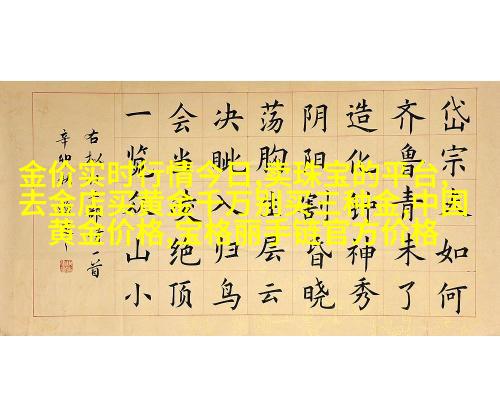 金价实时行情今日,卖珠宝的平台,
去金店买黄金千万别买三种金,中国
黄金价格,宝格丽手链官方价格
岱宗夫如何
齐鲁青未了
造化钟神秀
阴阳割昏晓
荡胸生层云
决眦入归鸟
会当凌绝顶
一览众山小
右一首
辛卯